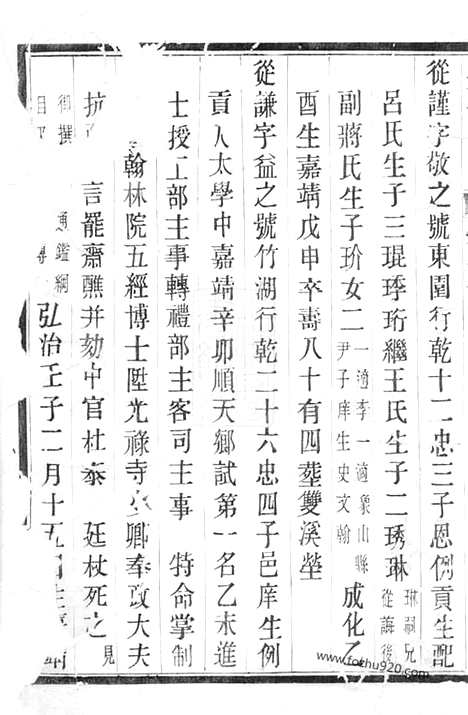 從謹字敬之號東園行乾十二忠三子恩例貢生配
呂氏生子三琨琈珩繼王氏生子二琇琳琳嗣兄從誨後
副蔣氏生子玠女二一適李一適象山縣尹子庠生史文翰成化乙
酉生嘉靖戊申卒壽八十有四塟雙溪塋
從謙字益之號竹湖行乾二十六忠四子邑庠生例
貢入太學中嘉靖辛卯順天鄉試第一名乙未進
士授工部主事轉禮部主客司主事 特命掌制
翰林院五經博士陞光祿寺少卿奉政大夫
抗 言罷齋醮并劾中官杜泰 廷杖死之見
御撰 通鑑綱目 弘治壬子二月十五
www.fozhu920.com